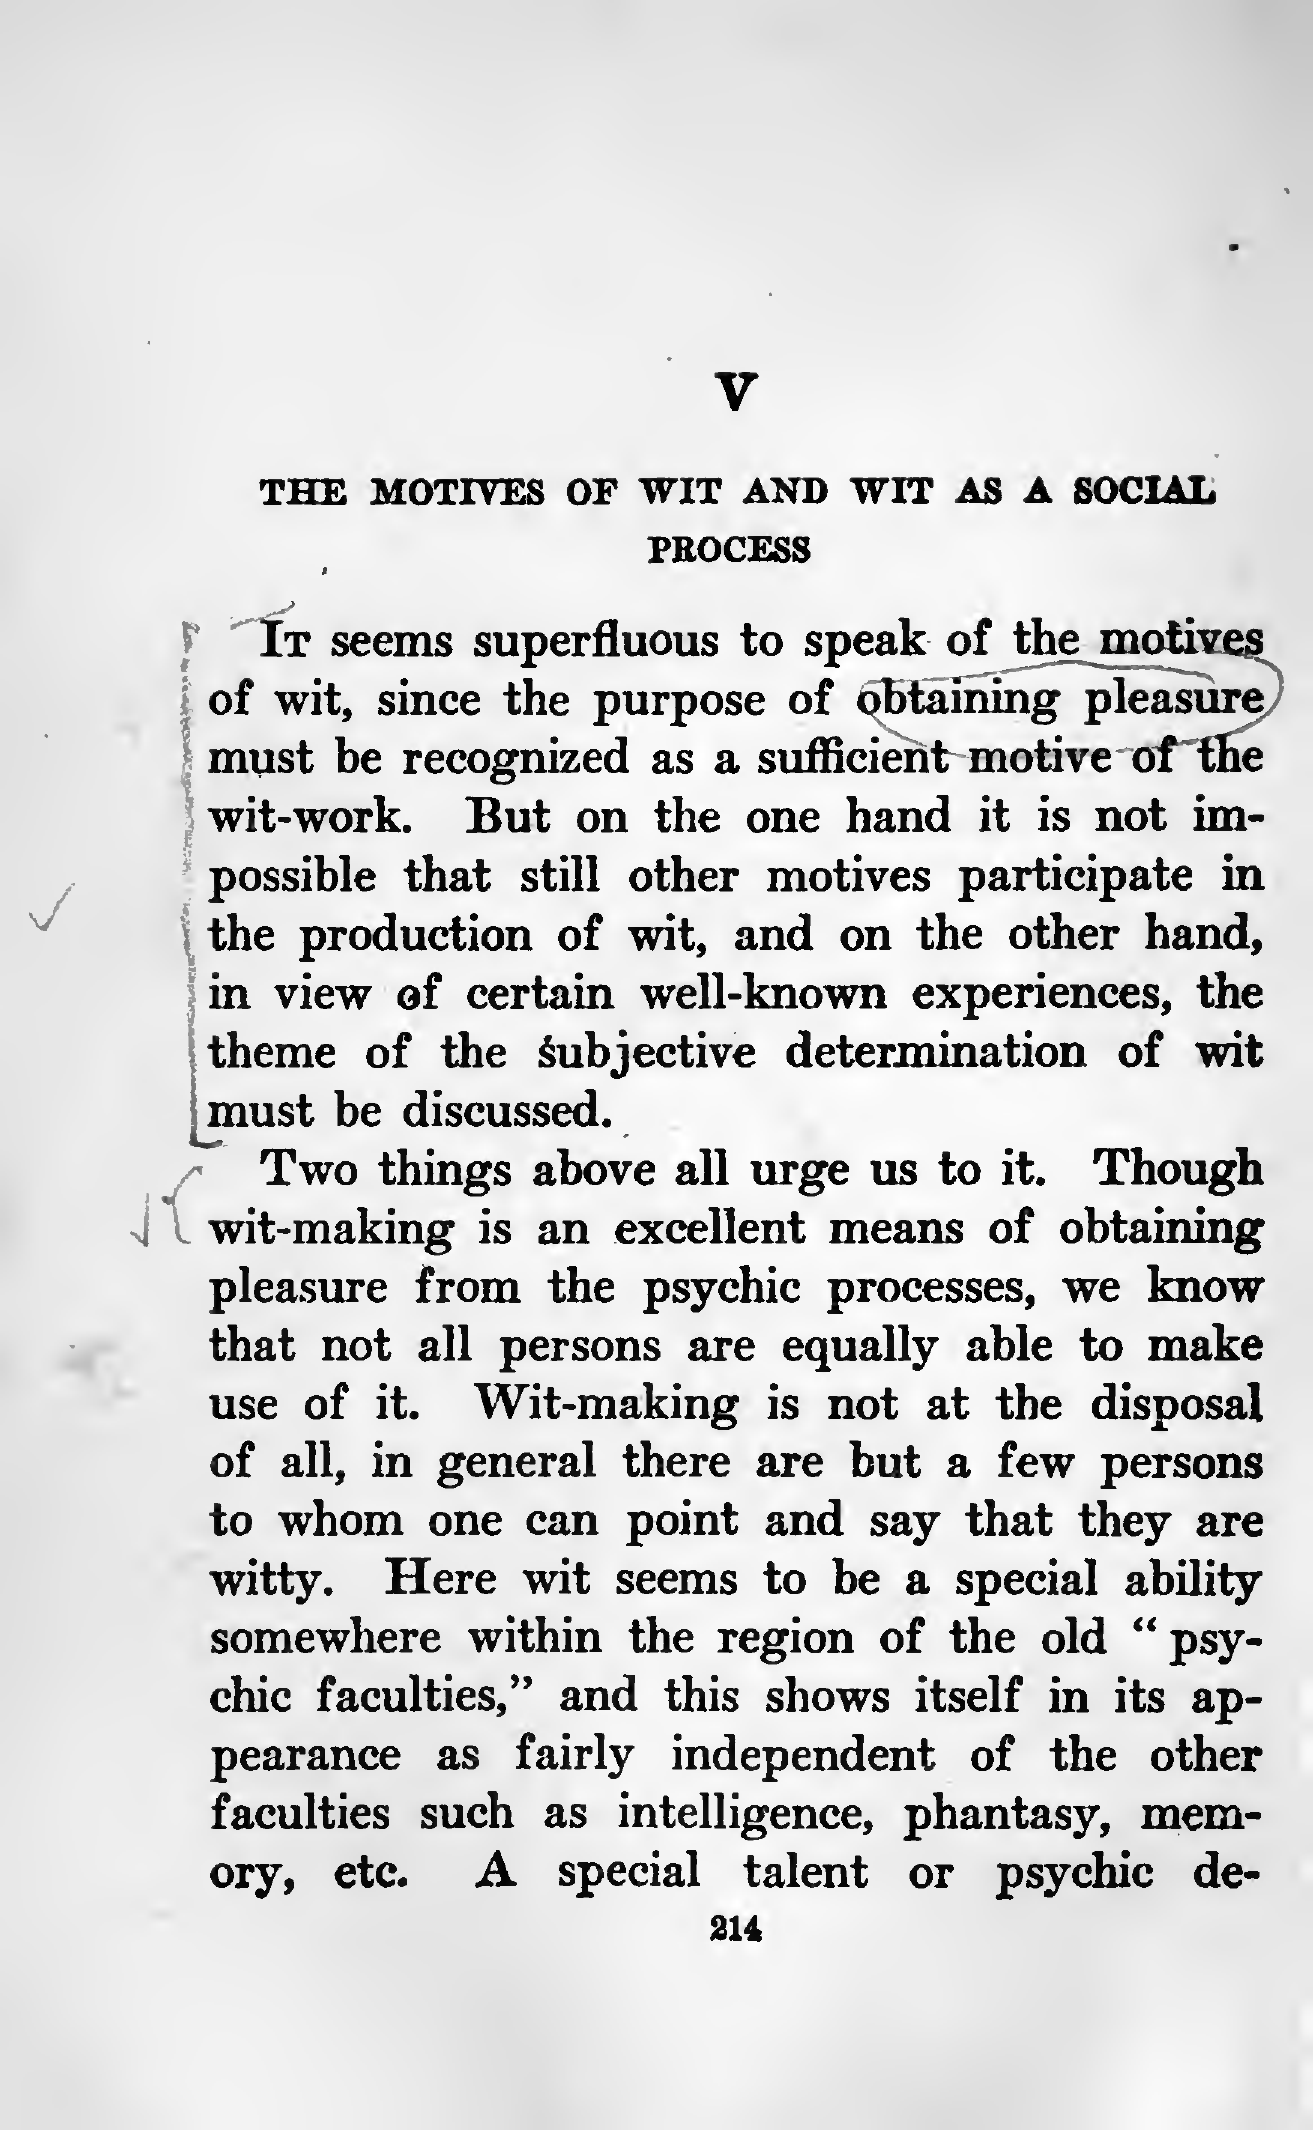 V
THE MOTIVES OF WIT AND WIT AS A SOCIAL
PROCESS
IT seems superfluous to speak of the motives
of wit, since the purpose of obtaining pleasure
must be recognized as a sufficient motive of the
wit-work. But on the one hand it is not im-
possible that still other motives participate in
the production of wit, and on the other hand,
in view of certain well-known experiences, the
theme of the subjective determination of wit
must be discussed.
Two things above all urge us to it. Though
wit-making is an excellent means of obtaining
pleasure from the psychic processes, we know
that not all persons are equally able to make
use of it. Wit-making is not at the disposal
of all, in general there are but a few persons
to whom one can point and say that they are
witty. Here wit seems to be a special ability
somewhere within the region of the old “ psy-
chic faculties,” and this shows itself in its ap-
pearance as fairly independent of the other
faculties such as intelligence, phantasy, mem-
ory, etc. A special talent or psychic de-
214